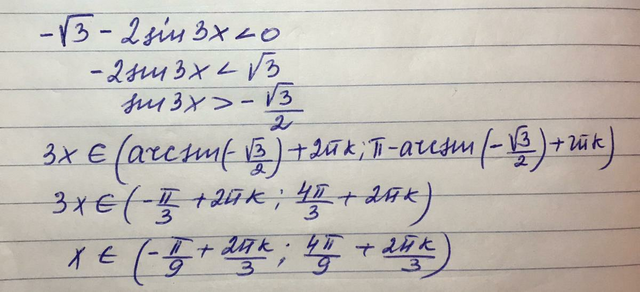 -√3 - 2sin 3x < 0
-2sin 3x < √3
sin 3x > -√3/2
3x ∈ (arcsin(-√3/2) + 2πk; π - arcsin(-√3/2) + 2πk)
3x ∈ (-π/3 + 2πk; 4π/3 + 2πk)
x ∈ (-π/9 + 2πk/3; 4π/9 + 2πk/3)